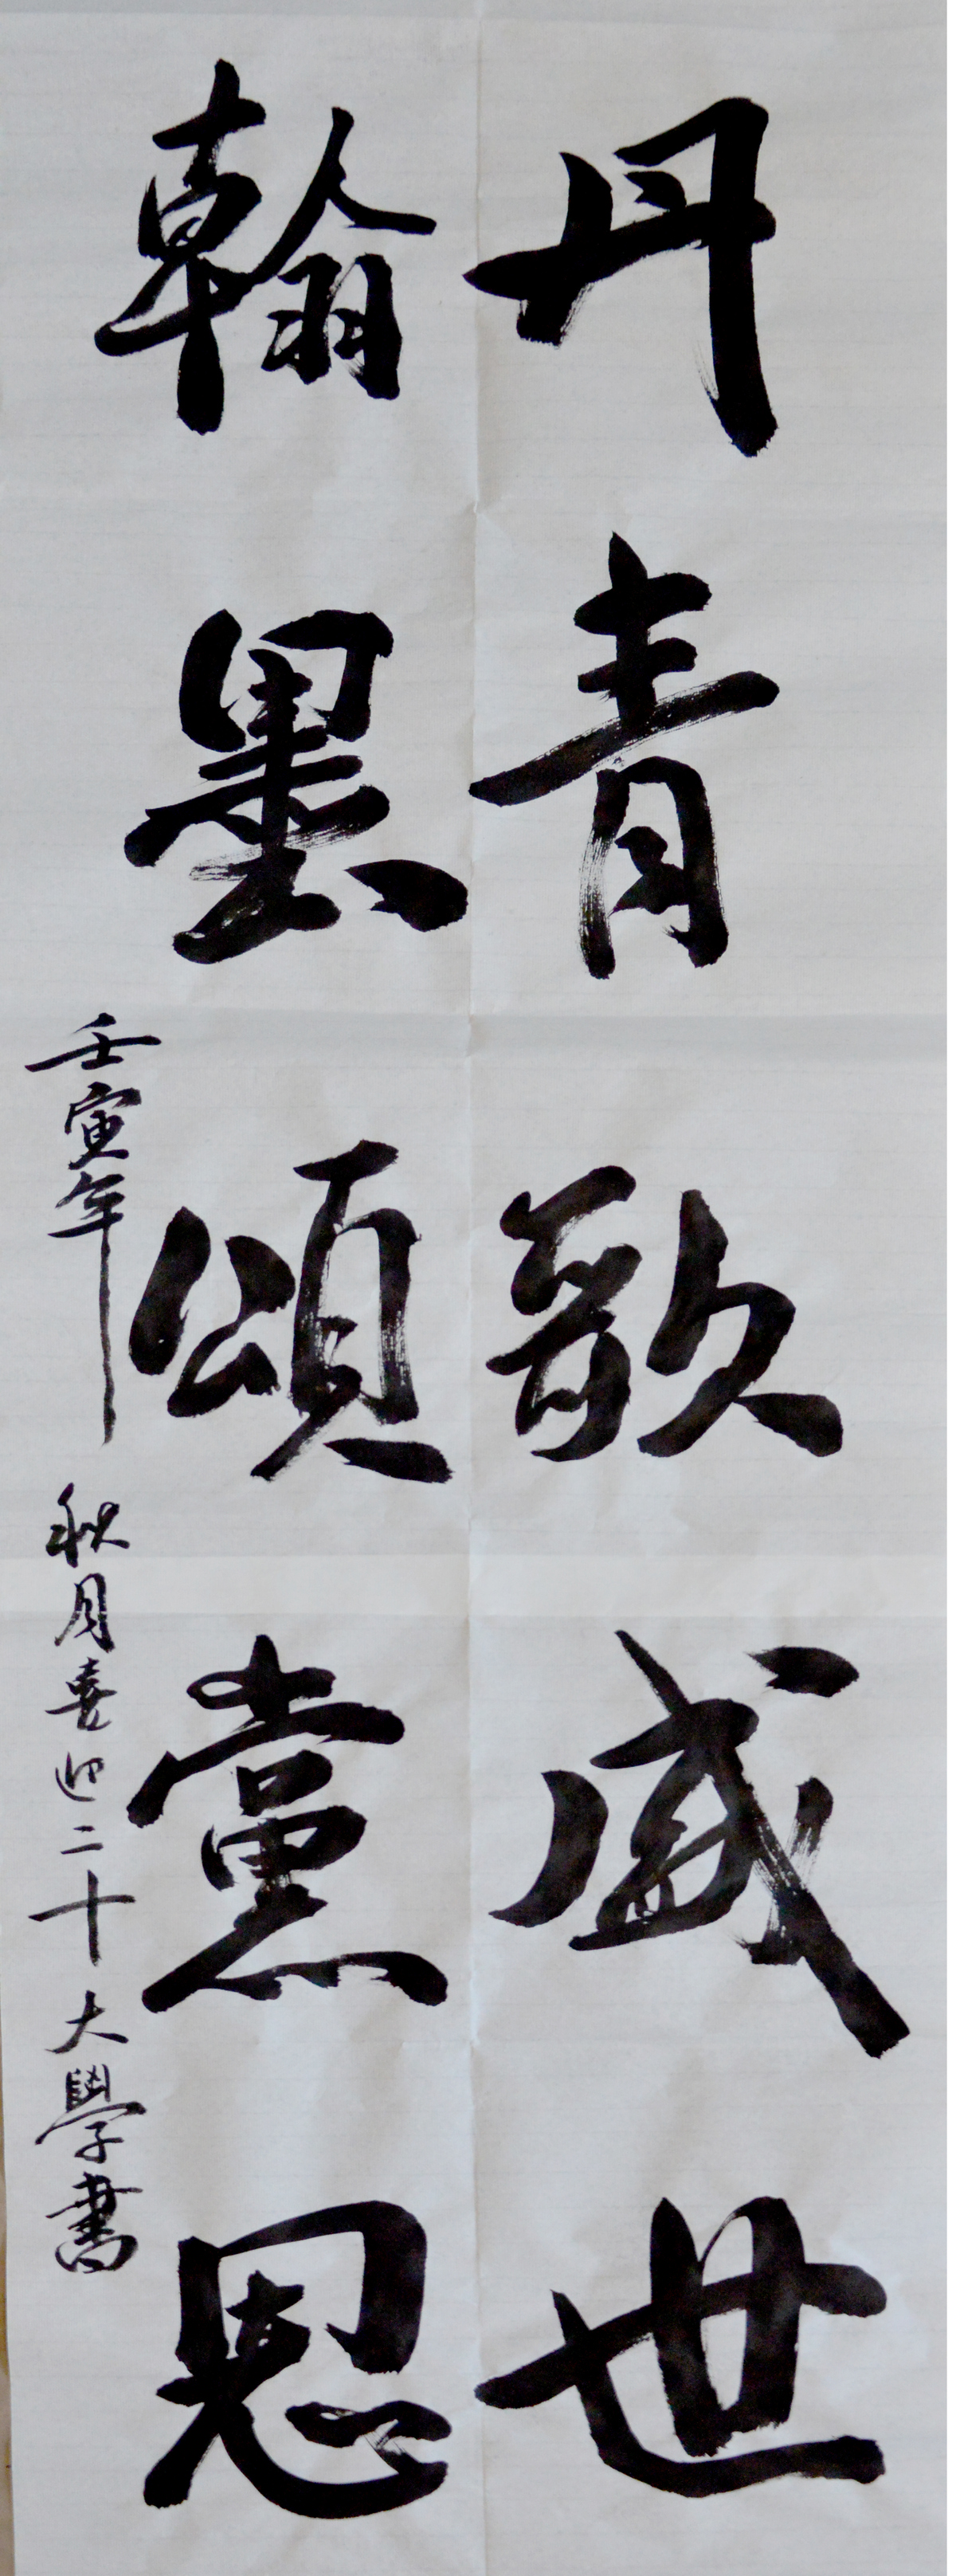 丹青歌盛世
翰墨頌黨恩
壬寅年秋月喜迎二十大學書